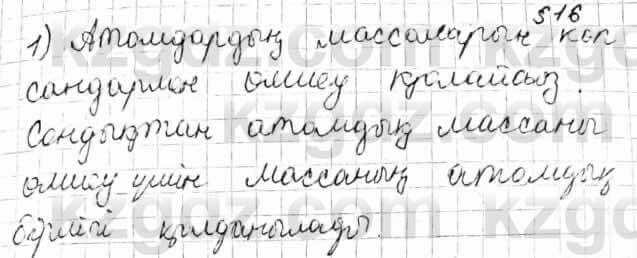 §16
1) Атомдардың массаларын көп
сандармен өлшеу қолайсыз.
Сондықтан атомдық массаны
өлшеу үшін массаның атомдық
бірлігі қолданылады.